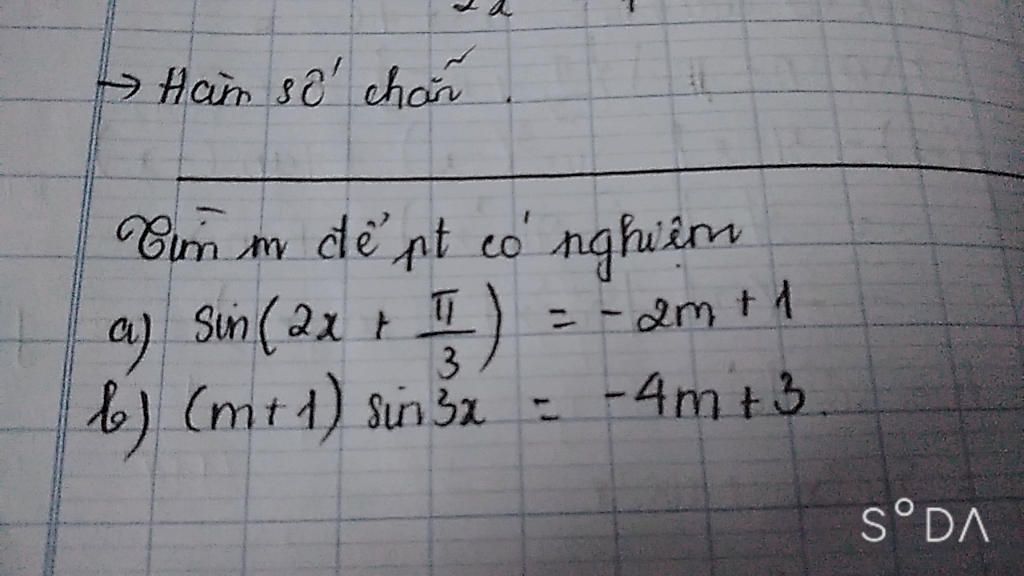 → Hàm số chẵn.
Tìm m để pt có nghiệm
a) sin(2x + π/3) = -2m + 1
b) (m+1) sin3x = -4m + 3.
SODA